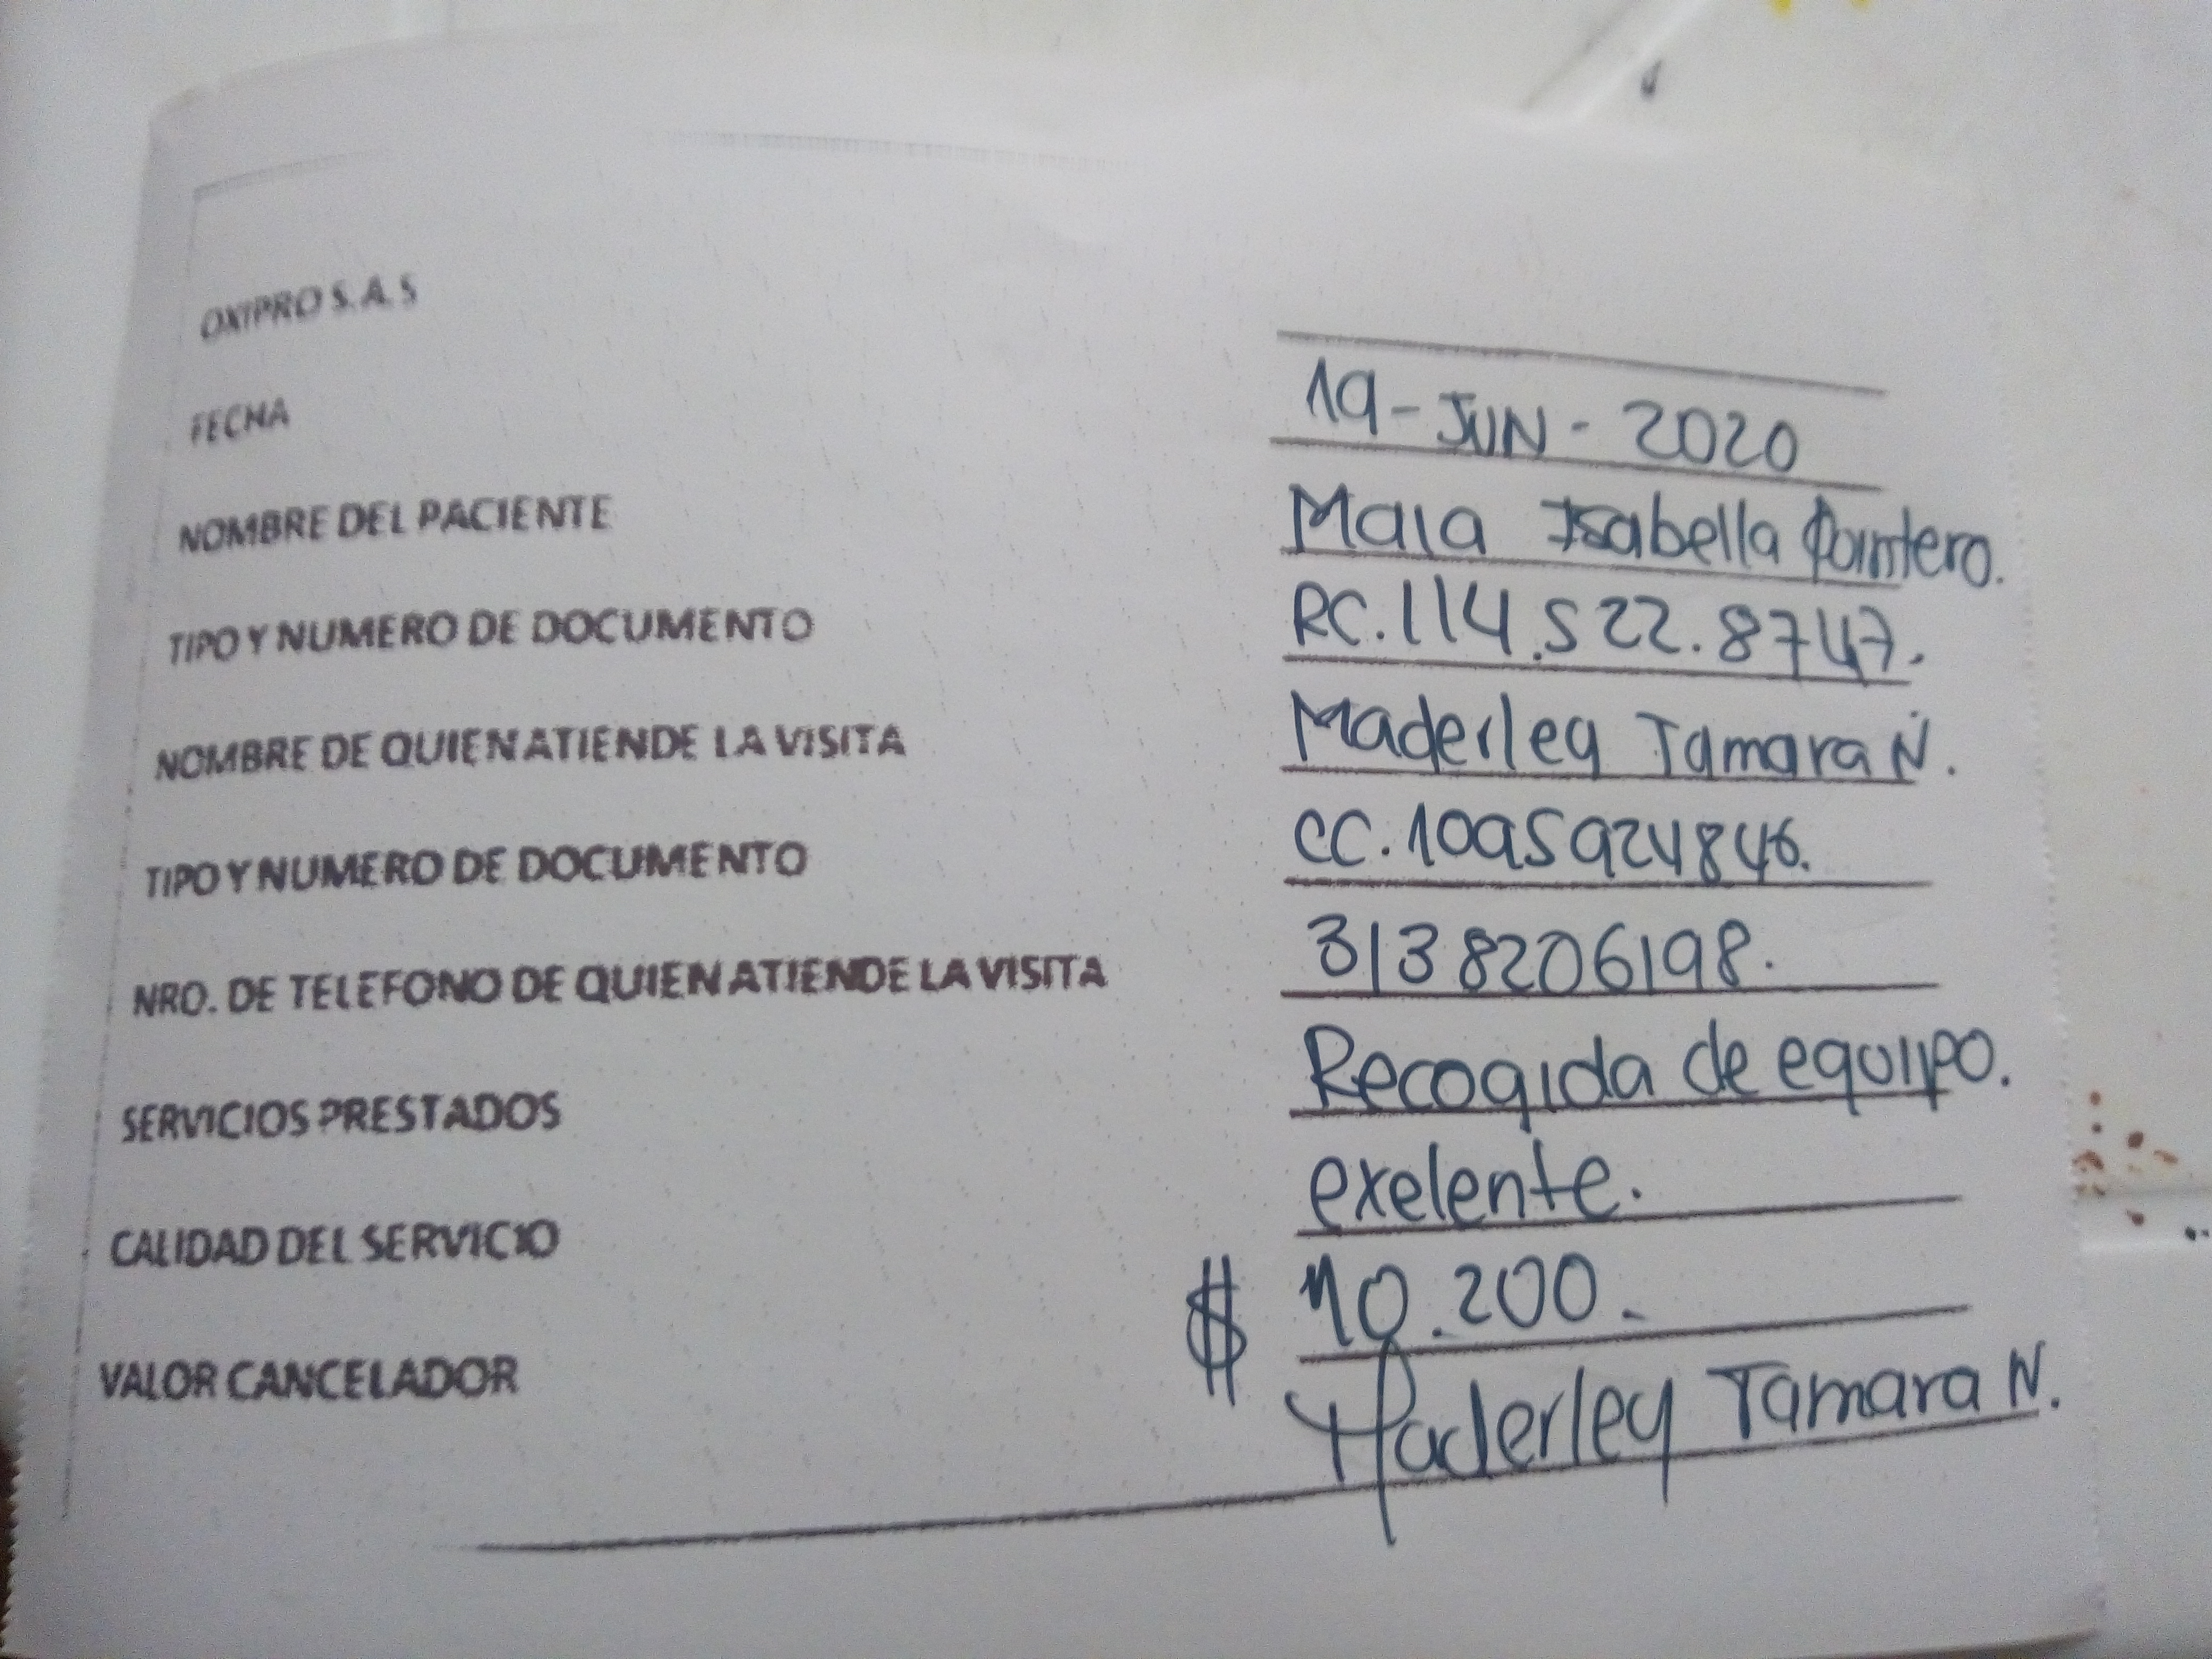 OXIPRO S.A.S
FECHA 19-JUN-2020
NOMBRE DEL PACIENTE Maia Isabella Quintero.
TIPO Y NUMERO DE DOCUMENTO RC.114.522.8747.
NOMBRE DE QUIEN ATIENDE LA VISITA Maderley Tamara N.
TIPO Y NUMERO DE DOCUMENTO CC.1095924846.
NRO. DE TELEFONO DE QUIEN ATIENDE LA VISITA 3138206198.
SERVICIOS PRESTADOS Recogida de equipo.
CALIDAD DEL SERVICIO exelente.
VALOR CANCELADOR $ 10.200.
Maderley Tamara N.